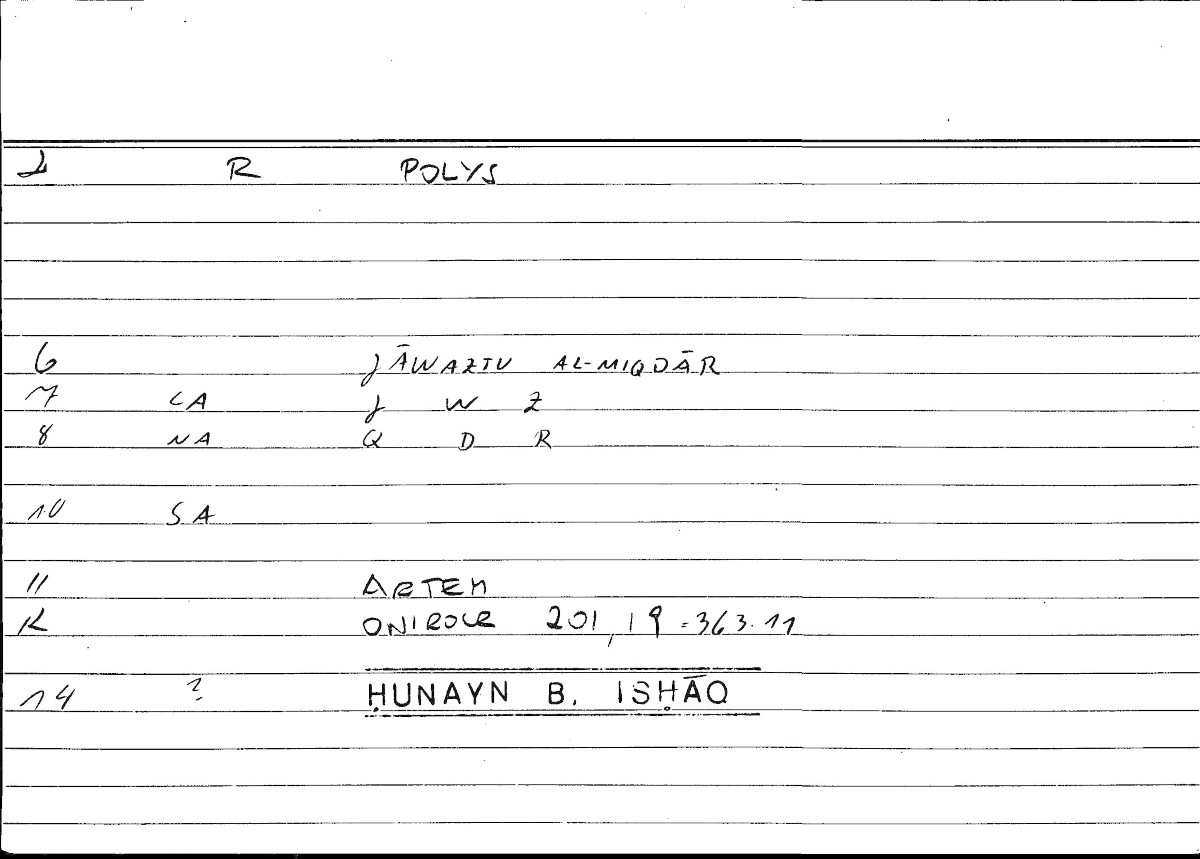 R POLYS
6 JĀWAZTU AL-MIQDĀR
7 LA J W Z
8 NA Q D R
10 SA
11 ARTEM
ONIROCR 201,19 = 363.11
14 ? ḤUNAYN B. ISḤĀQ